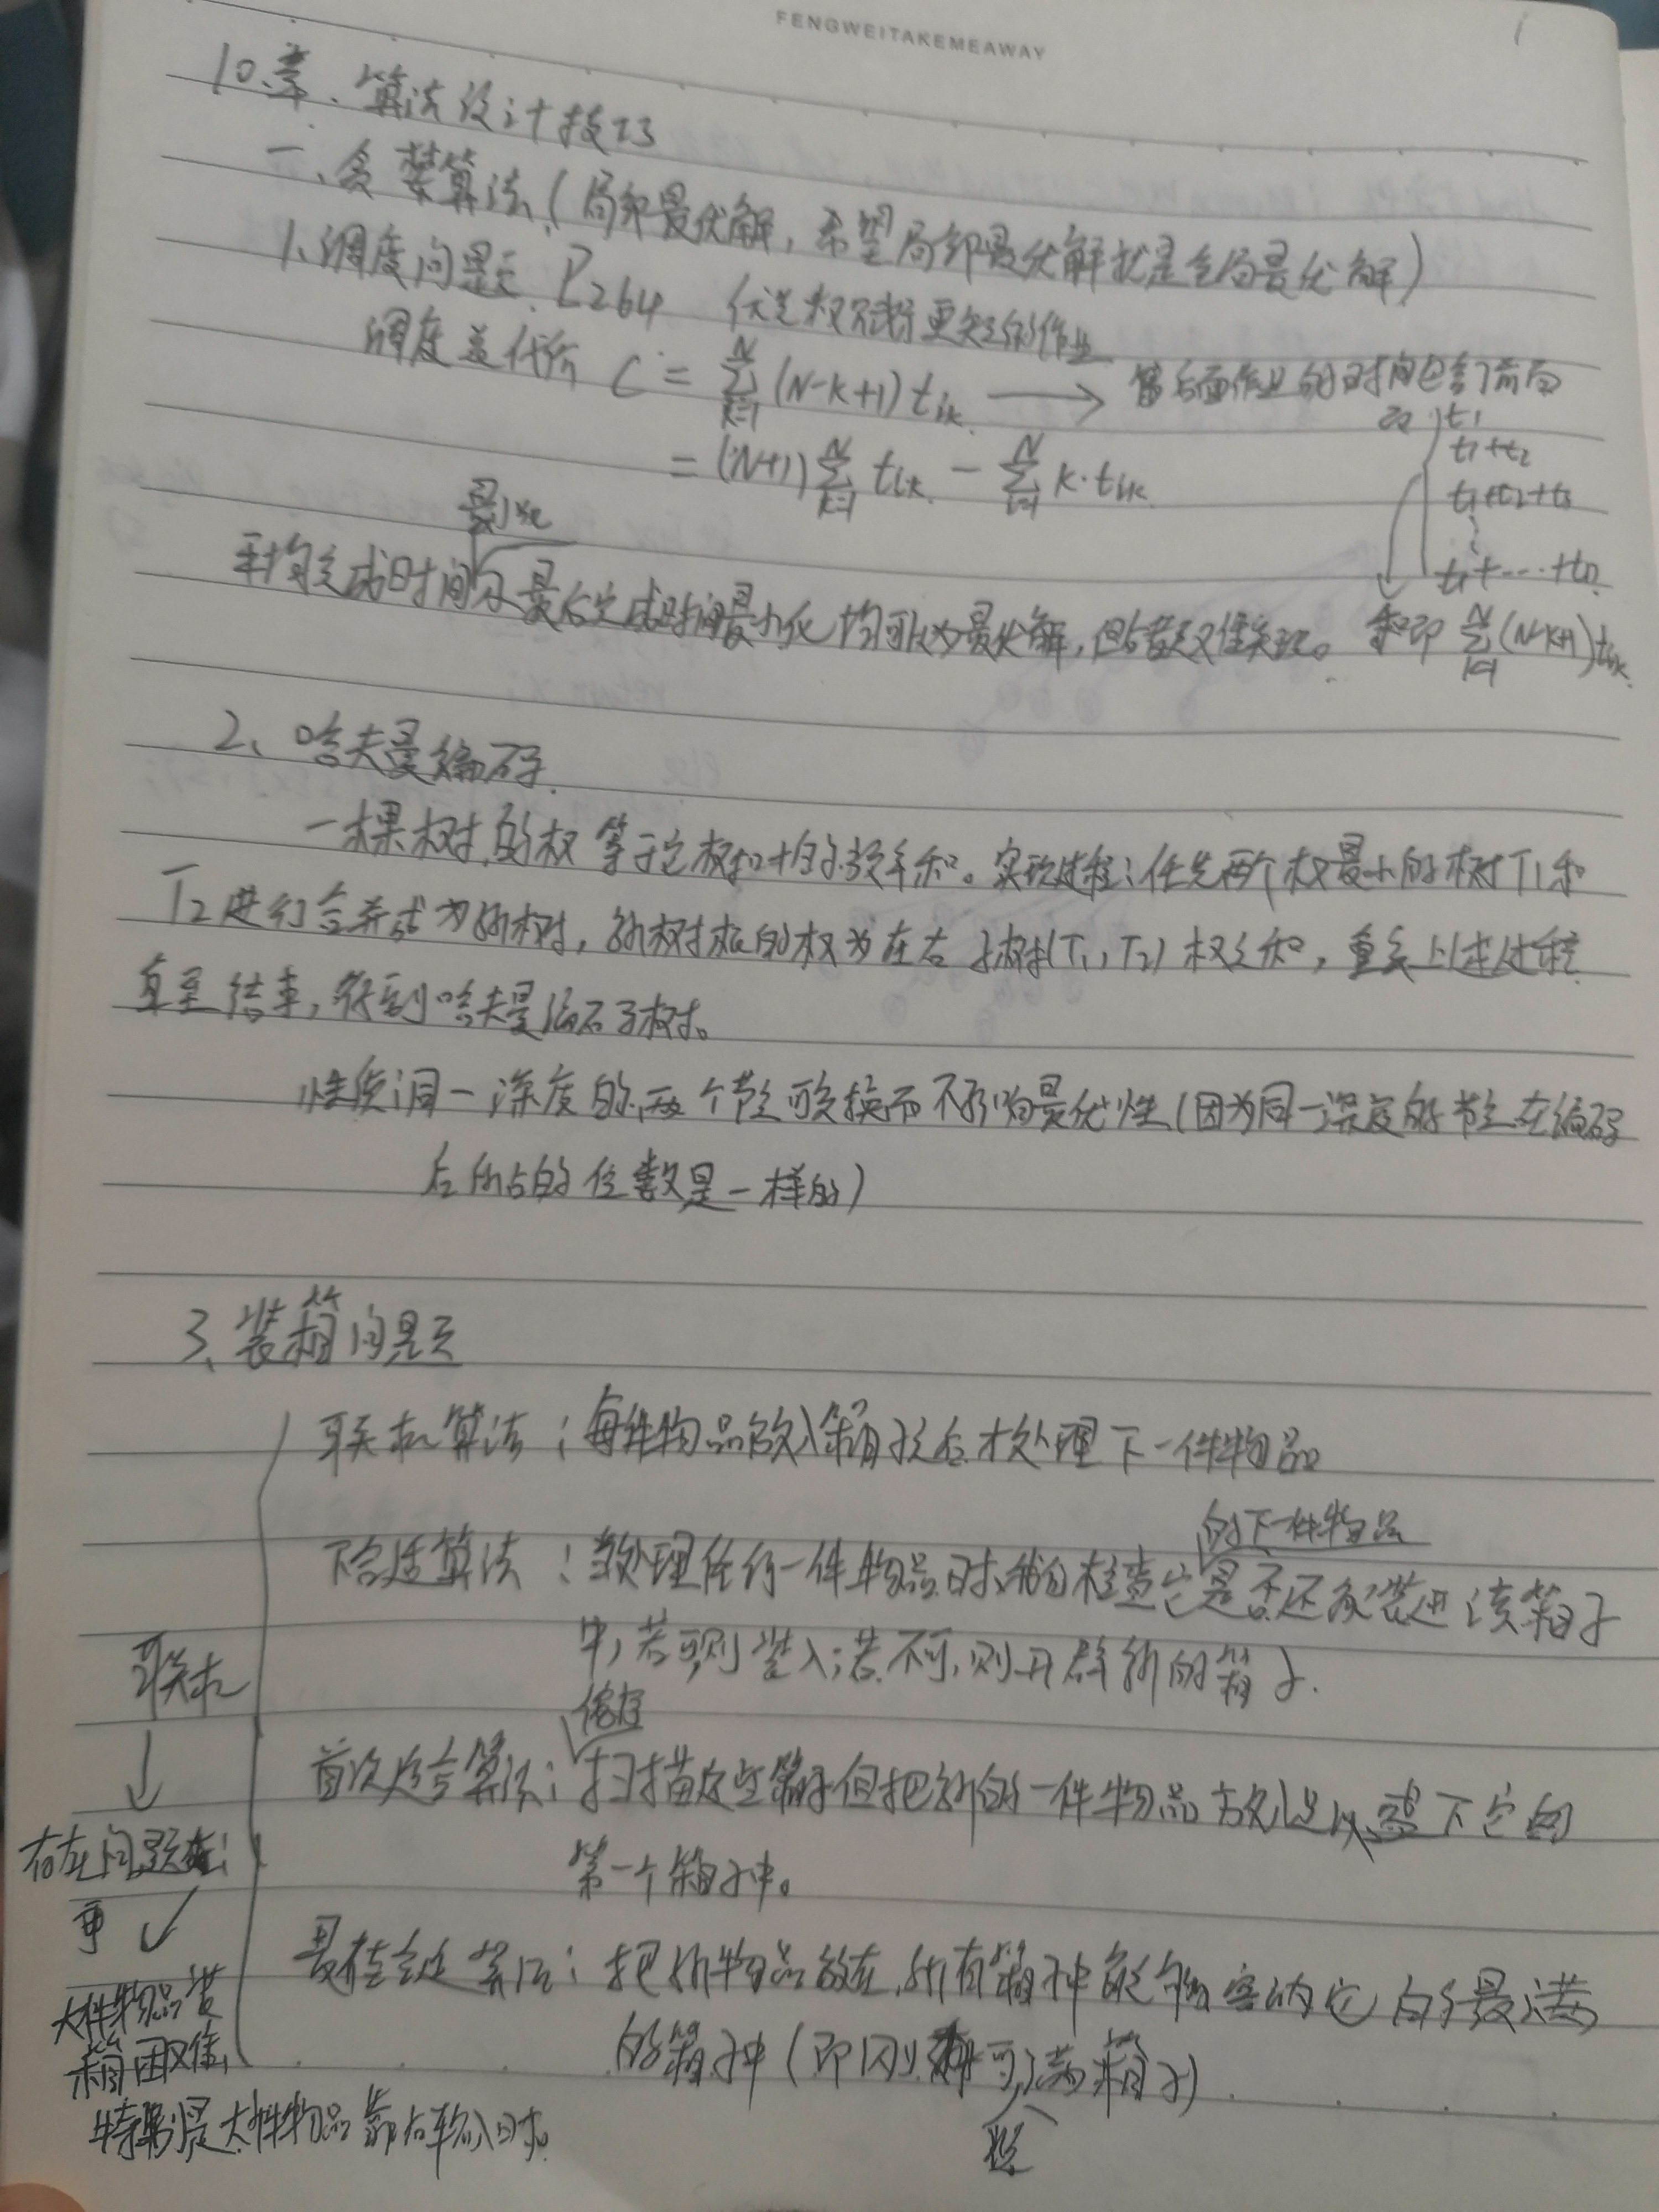 FENGWEITAKEMEAWAY
1
10章、算法设计技巧
一、贪婪算法(局部最优解,希望局部最优解就是全局最优解)
1、调度问题 P264 优先权完成更短的作业
调度总代价 C = ∑(N-k+1) tik → 后面作业的时间包含了前面
N
k=1
= (N+1)∑ tik - ∑ k·tik
t1
t1+t2
t1+t2+t3
t1+····+tn
最小化
平均完成时间及最后完成时间最小化均可以为最优解,但后者却很难实现。 即 ∑(N-k+1)tik
2、哈夫曼编码
一棵树的权等于它树叶的频率和。实现过程:任选两个权最小的树T1和
T2进行合并成为新树,新树权的权为左右子树(T1,T2)权之和,重复上述过程
直至结束,得到哈夫曼编码树。
性质:同一深度的两个节点可交换而不影响最优性(因为同一深度的节点在编码
后所占的位数是一样的)
3、装箱问题
联机算法:每件物品放入箱子之后才处理下一件物品
的下一件物品
下合适算法:当处理任何一件物品时,我们检查它是否还能装进该箱子
中,若可,则装入;若不可,则开辟新的箱子.
依序
首次适合算法:扫描这些箱子但把新的一件物品放入足以盛下它的
第一个箱子中。
最佳适合算法:把新物品放在所有箱子中能够容纳它的最满
的箱子中(即可满箱子)
联机
↓
存在问题:
大件物品装
箱困难
特别是大件物品靠后输入时。